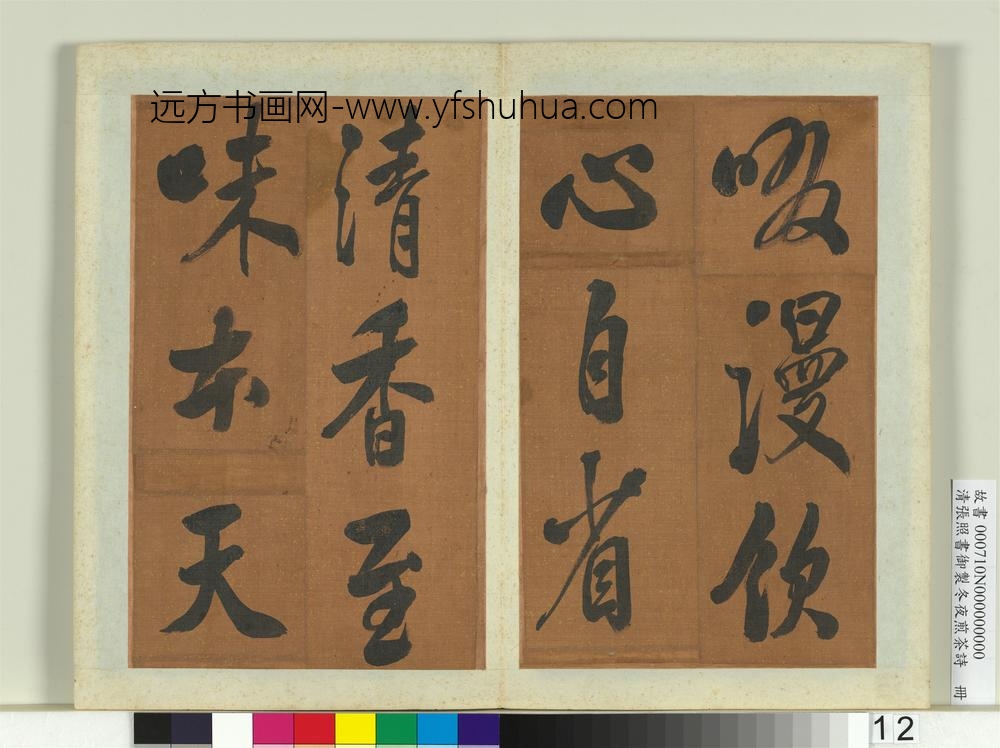 远方书画网-www.yfshuhua.com
啜漫饮
心自省
清香至
味本天
故書 000710N000000000
清張照書御製冬夜煎茶詩 冊
12